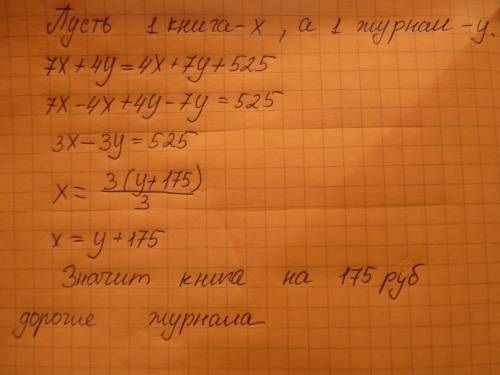 Пусть 1 книга-x, а 1 журнал-y.
7x+4y=4x+7y+525
7x-4x+4y-7y=525
3x-3y=525
x= 3(y+175)/3
x=y+175
Значит книга на 175 руб
дороже журнала